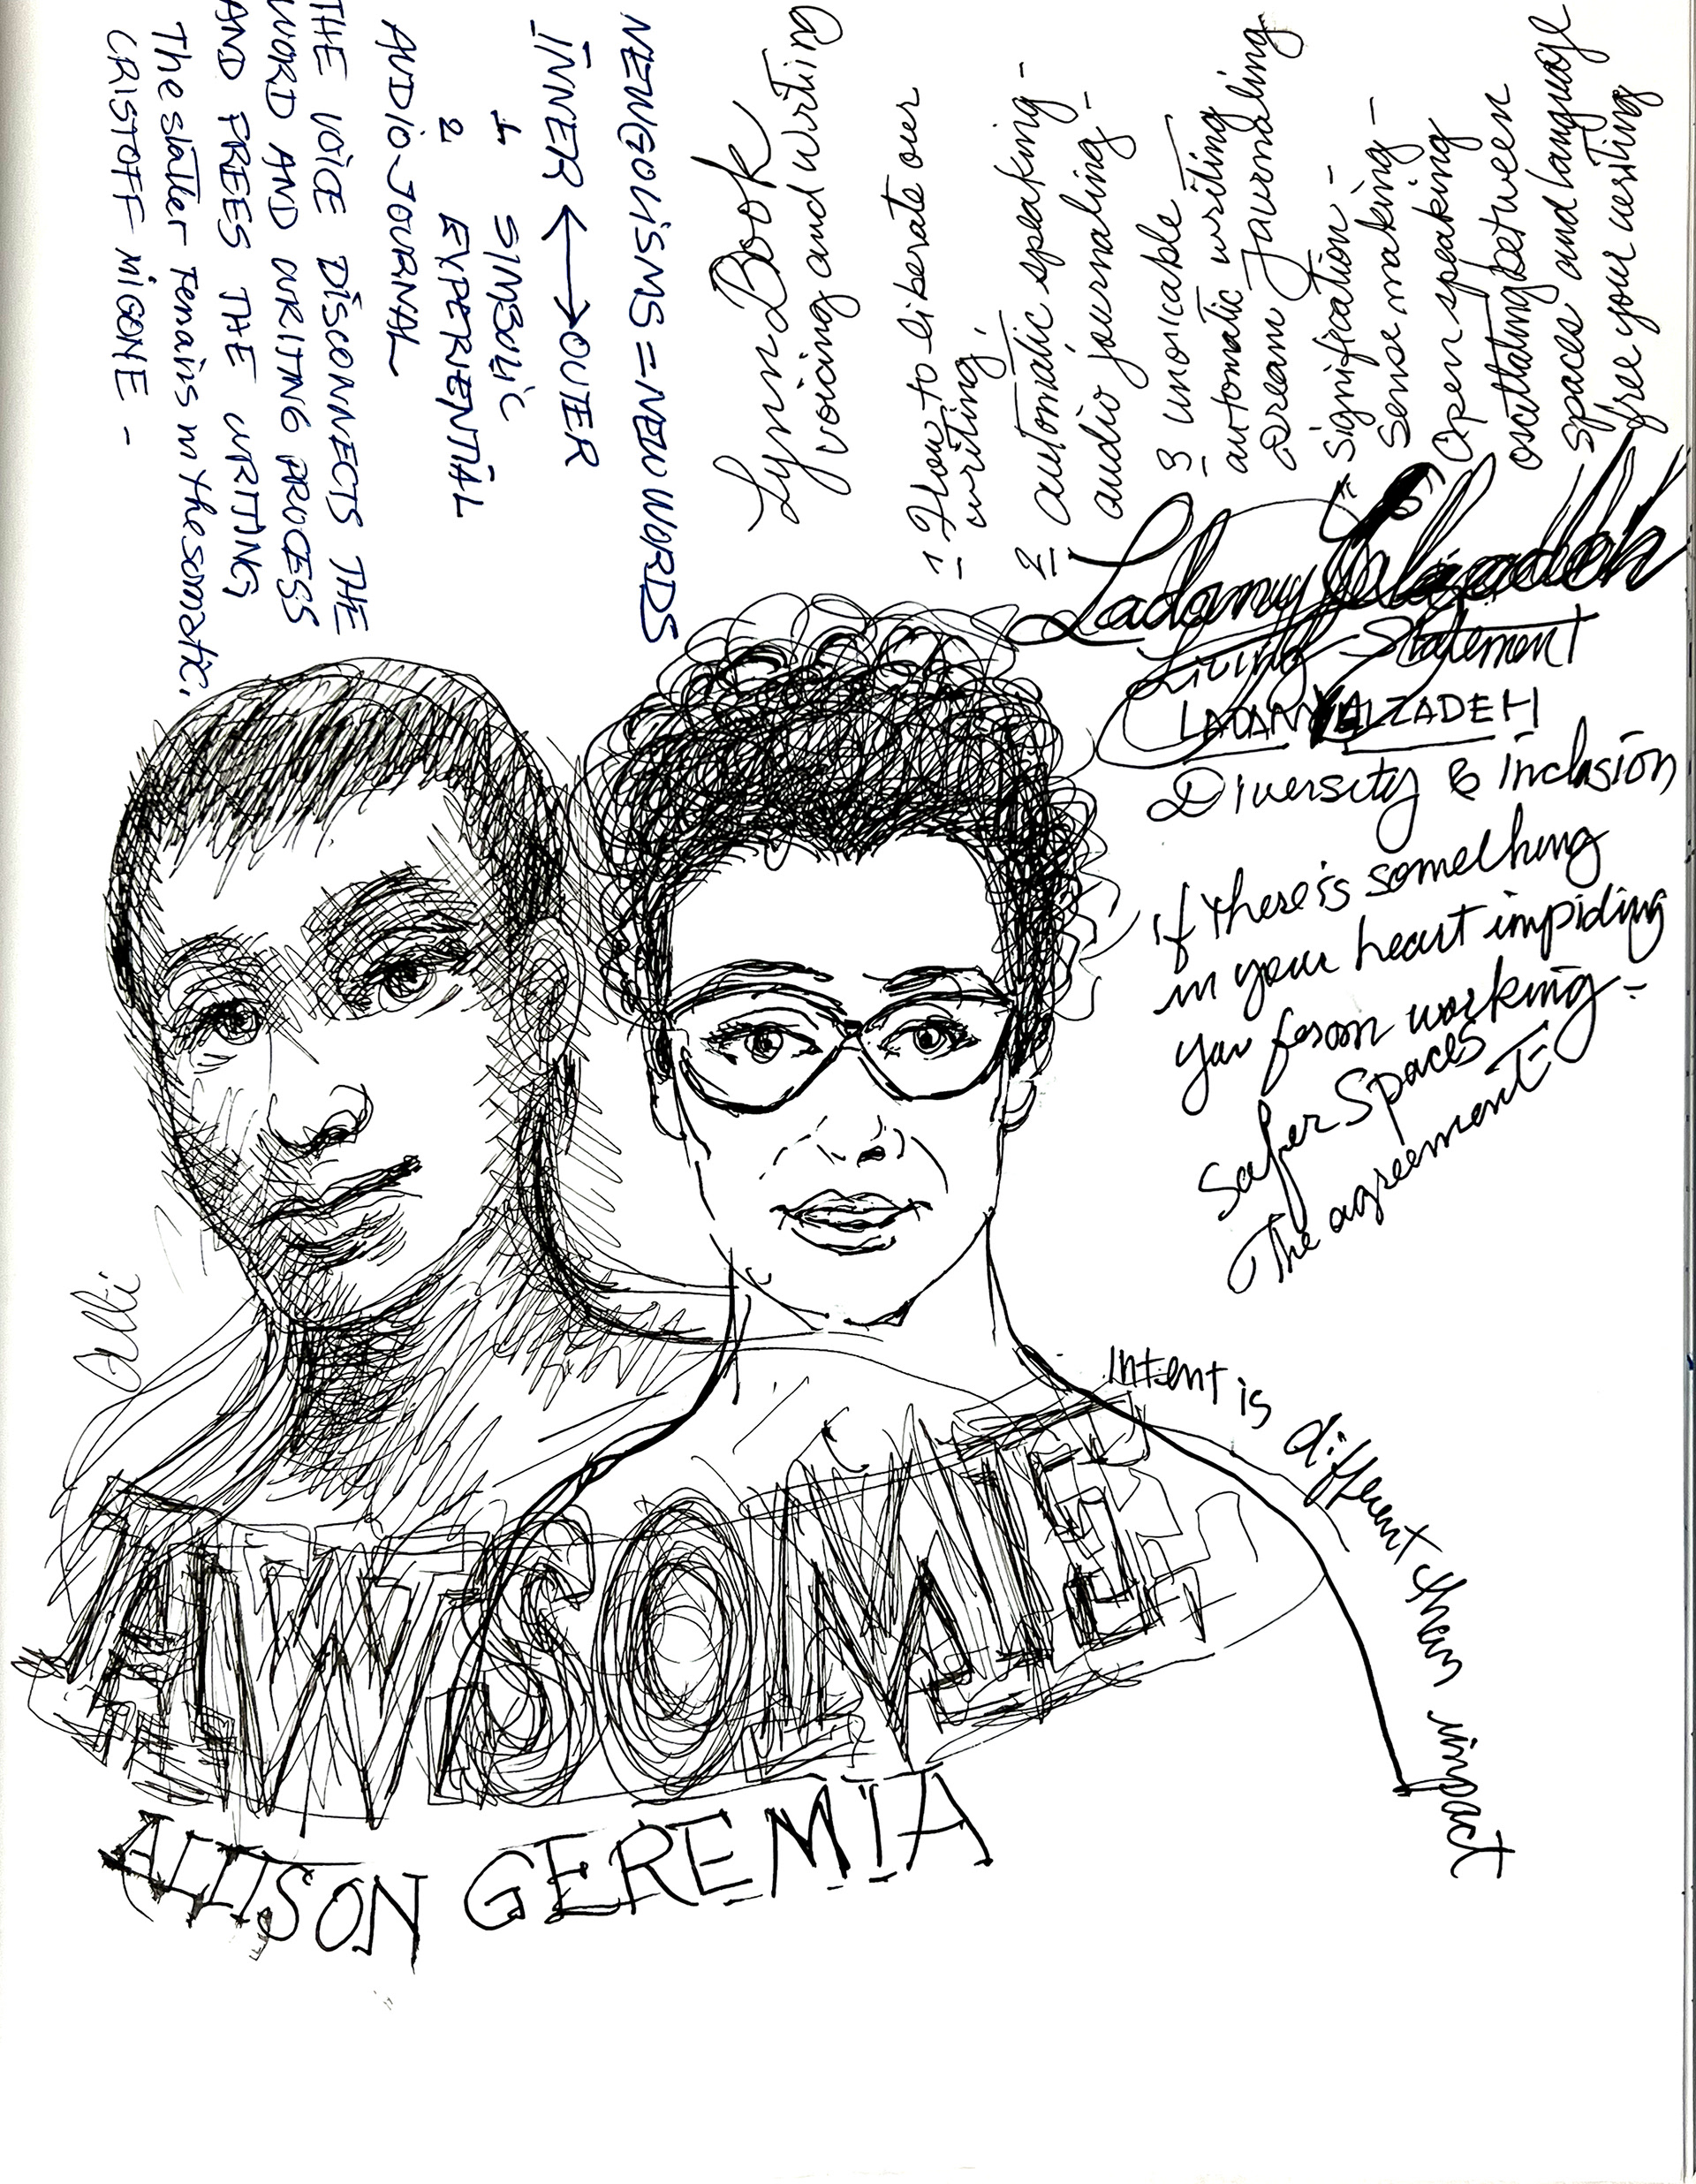 NEWGOLISMS = NEW WORDS
INNER ⟷ OUTER
1 SIMBOLIC
2 EXPERIENTIAL
AUDIO-JOURNAL
THE VOICE DISCONNECTS THE
WORD AND WRITING PROCESS
AND FREES THE WRITING
The statler remains in the somatic.
CRISTOFF MIGONE -
Lynn Book
voicing and writing
1 - How to liberate over
writing,
2 automatic speaking -
audio journaling -
3 unoricable
automatic writing
Dream Journaling
= signification -
Sense making -
Open speaking
oscillating between
spaces and language
free your writing
Living Statement
LADAN YALZADEH
Diversity & inclusion
if there is something
in your heart impiding
you from working -
Safer Spaces
The agreement -
intent is different than impact
Alli
AWSOME
ALLISON GEREMIA